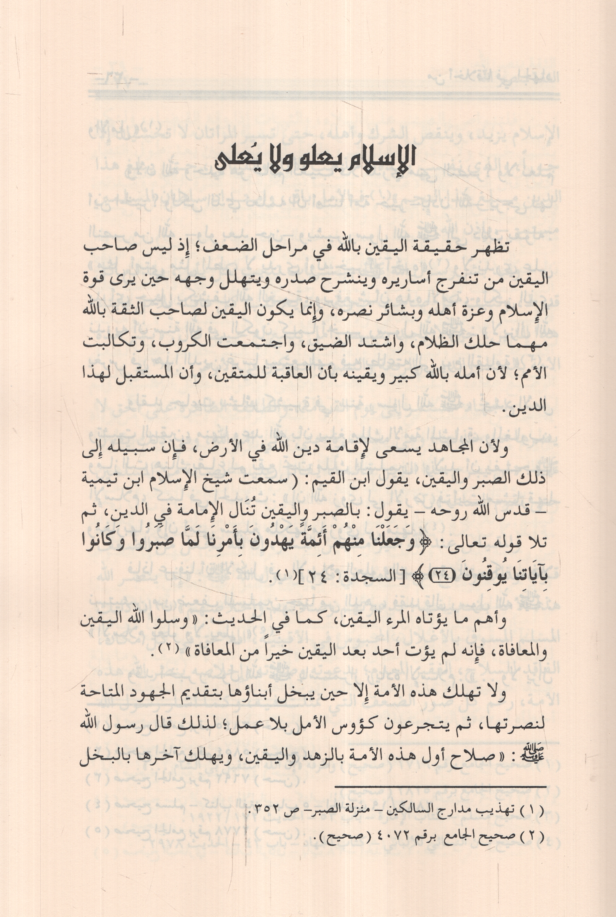 الإسلام يعلو ولا يُعلى
تظهر حقيقة اليقين بالله في مراحل الضعف؛ إذ ليس صاحب
اليقين من تنفرج أساريره وينشرح صدره ويتهلل وجهه حين يرى قوة
الإسلام وعزة أهله وبشائر نصره، وإنما يكون اليقين لصاحب الثقة بالله
مهما حلك الظلام، واشتد الضيق، واجتمعت الكروب، وتكالبت
الأمم؛ لأن أمله بالله كبير ويقينه بأن العاقبة للمتقين، وأن المستقبل لهذا
الدين.
ولأن المجاهد يسعى لإقامة دين الله في الأرض، فإن سبيله إلى
ذلك الصبر واليقين، يقول ابن القيم: (سمعت شيخ الإسلام ابن تيمية
– قدس الله روحه – يقول: بالصبر واليقين تُنَال الإمامة في الدين، ثم
تلا قوله تعالى: ﴿ وَجَعَلْنَا مِنْهُمْ أَئِمَّةً يَهْدُونَ بِأَمْرِنَا لَمَّا صَبَرُوا وَكَانُوا
بِآيَاتِنَا يُوقِنُونَ (٢٤) ﴾ [السجدة: ٢٤])(١).
وأهم ما يؤتاه المرء اليقين، كما في الحديث: «وسلوا الله اليقين
والمعافاة، فإنه لم يؤت أحد بعد اليقين خيراً من المعافاة» (٢).
ولا تهلك هذه الأمة إلا حين يبخل أبناؤها بتقديم الجهود المتاحة
لنصرتها، ثم يتجرعون كؤوس الأمل بلا عمل؛ لذلك قال رسول الله
ﷺ: «صلاح أول هذه الأمة بالزهد واليقين، ويهلك آخرها بالبخل
(١) تهذيب مدارج السالكين – منزلة الصبر– ص ٣٥٢.
(٢) صحيح الجامع برقم ٤٠٧٢ (صحيح).